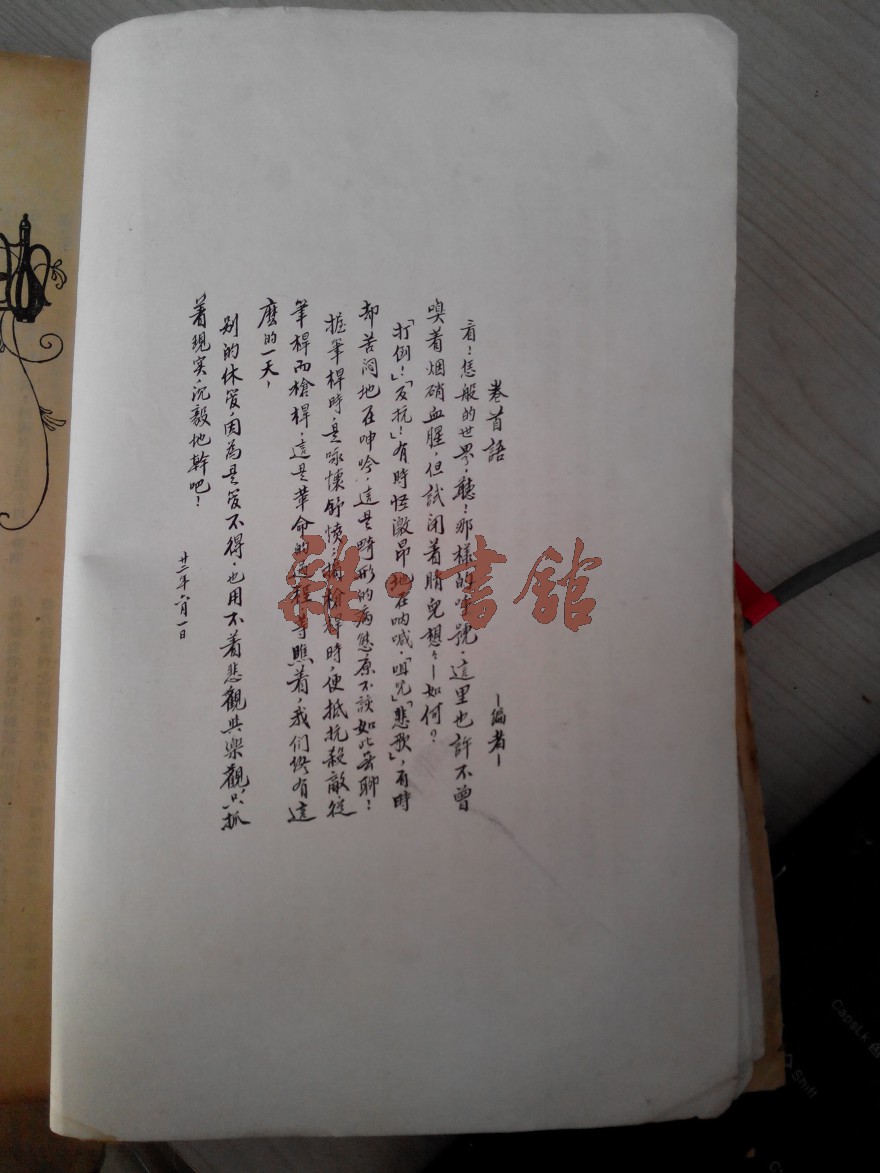 卷首語
—編者—
看！恁般的世界，聽！那樣的呼號，這里也許不曾
嗅着烟硝血腥，但試閉着睛兒想々—如何？
「打倒！」「反抗！」有時怪激昂地在吶喊，「咀咒」「悲歌」，有時
却苦悶地在呻吟，這是畸形的病態原不該如此無聊！
握筆桿時，是咏懷舒憤；揭槍桿時，便抵抗殺敵從
筆桿而槍桿，這是革命的過程等瞧着，我们終有這
麼的一天，
别的休管，因為是管不得，也用不着悲觀與樂觀，只抓
着現实，沉毅地幹吧！
廿二年六月一日
雜·書館
CapsLk
Shift